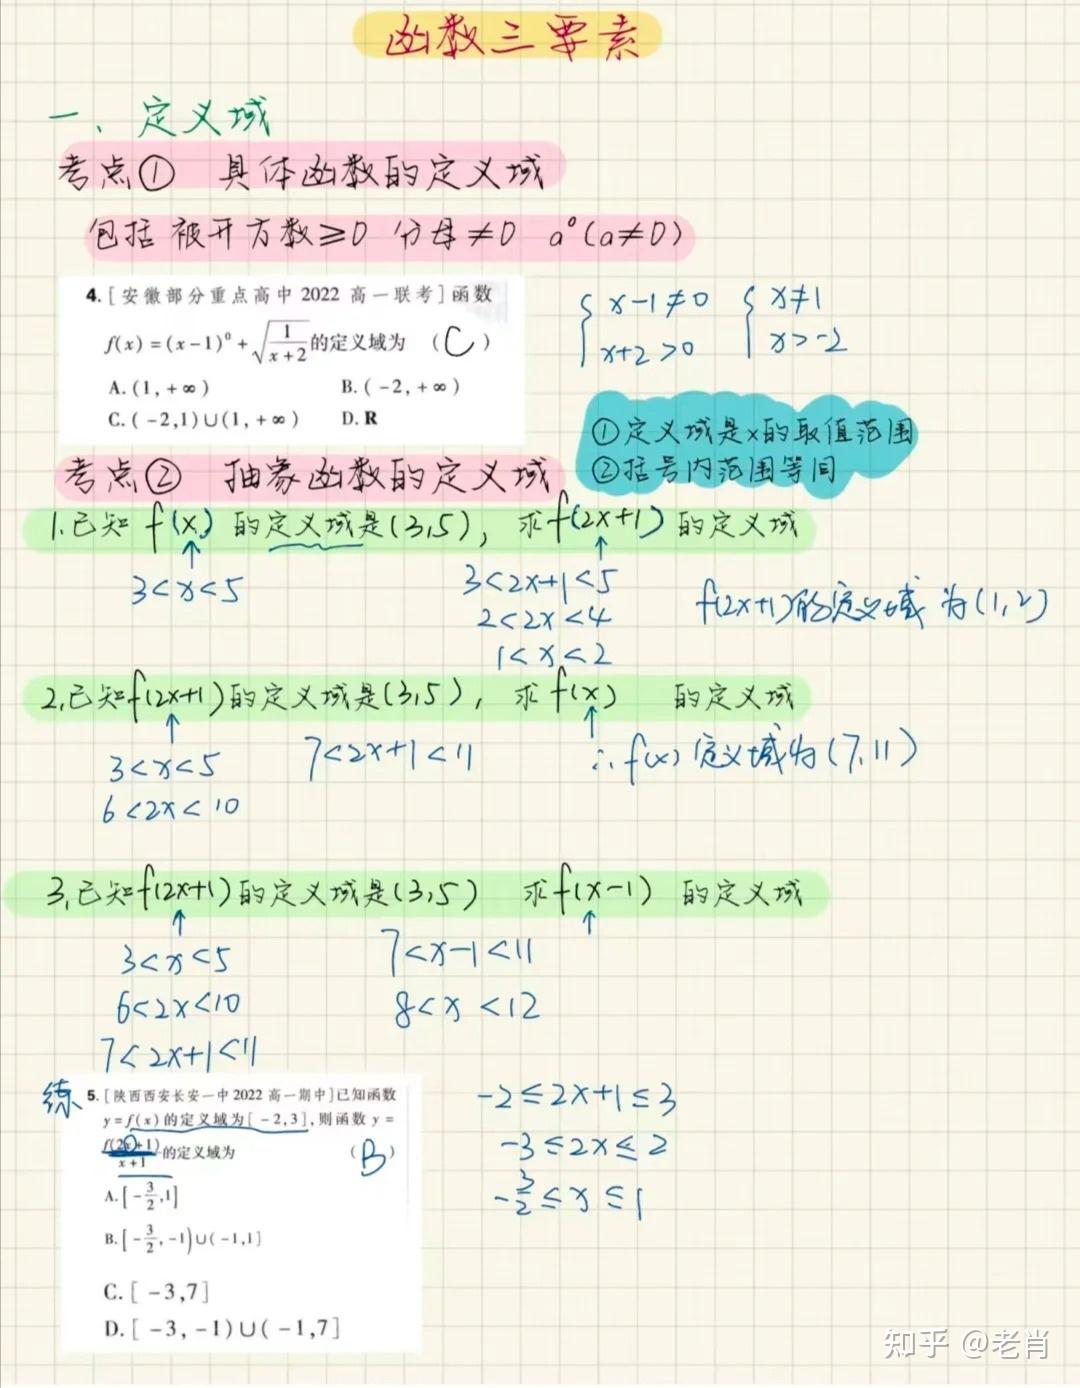 函数三要素
一、定义域
考点① 具体函数的定义域
包括 被开方数≥0 分母≠0 a⁰(a≠0)
4.[安徽部分重点高中 2022 高一联考]函数
f(x)=(x-1)⁰+√(1/(x+2))的定义域为 (C)
A.(1,+∞) B.(-2,+∞)
C.(-2,1)∪(1,+∞) D.R
{x-1≠0 {x≠1
x+2>0 x>-2
①定义域是x的取值范围
②括号内范围等同
考点② 抽象函数的定义域
1.已知 f(x) 的定义域是(3,5), 求f(2x+1)的定义域
↑ ↑
3<x<5 3<2x+1<5
2<2x<4
1<x<2
f(2x+1)的定义域为(1,2)
2,已知f(2x+1)的定义域是(3,5), 求f(x) 的定义域
↑ ↑
3<x<5 7<2x+1<11 ∴f(x)定义域为(7,11)
6<2x<10
3,已知f(2x+1)的定义域是(3,5) 求f(x-1) 的定义域
↑ ↑
3<x<5 7<x-1<11
6<2x<10 8<x<12
7<2x+1<11
练 5.[陕西西安长安一中 2022 高一期中]已知函数
y=f(x)的定义域为[-2,3],则函数 y=
f(2x+1)/(x+1)的定义域为 (B)
A.[-3/2,1]
B.[-3/2,-1)∪(-1,1]
C.[-3,7]
D.[-3,-1)∪(-1,7]
-2≤2x+1≤3
-3≤2x≤2
-3/2≤x≤1
知乎 @老肖